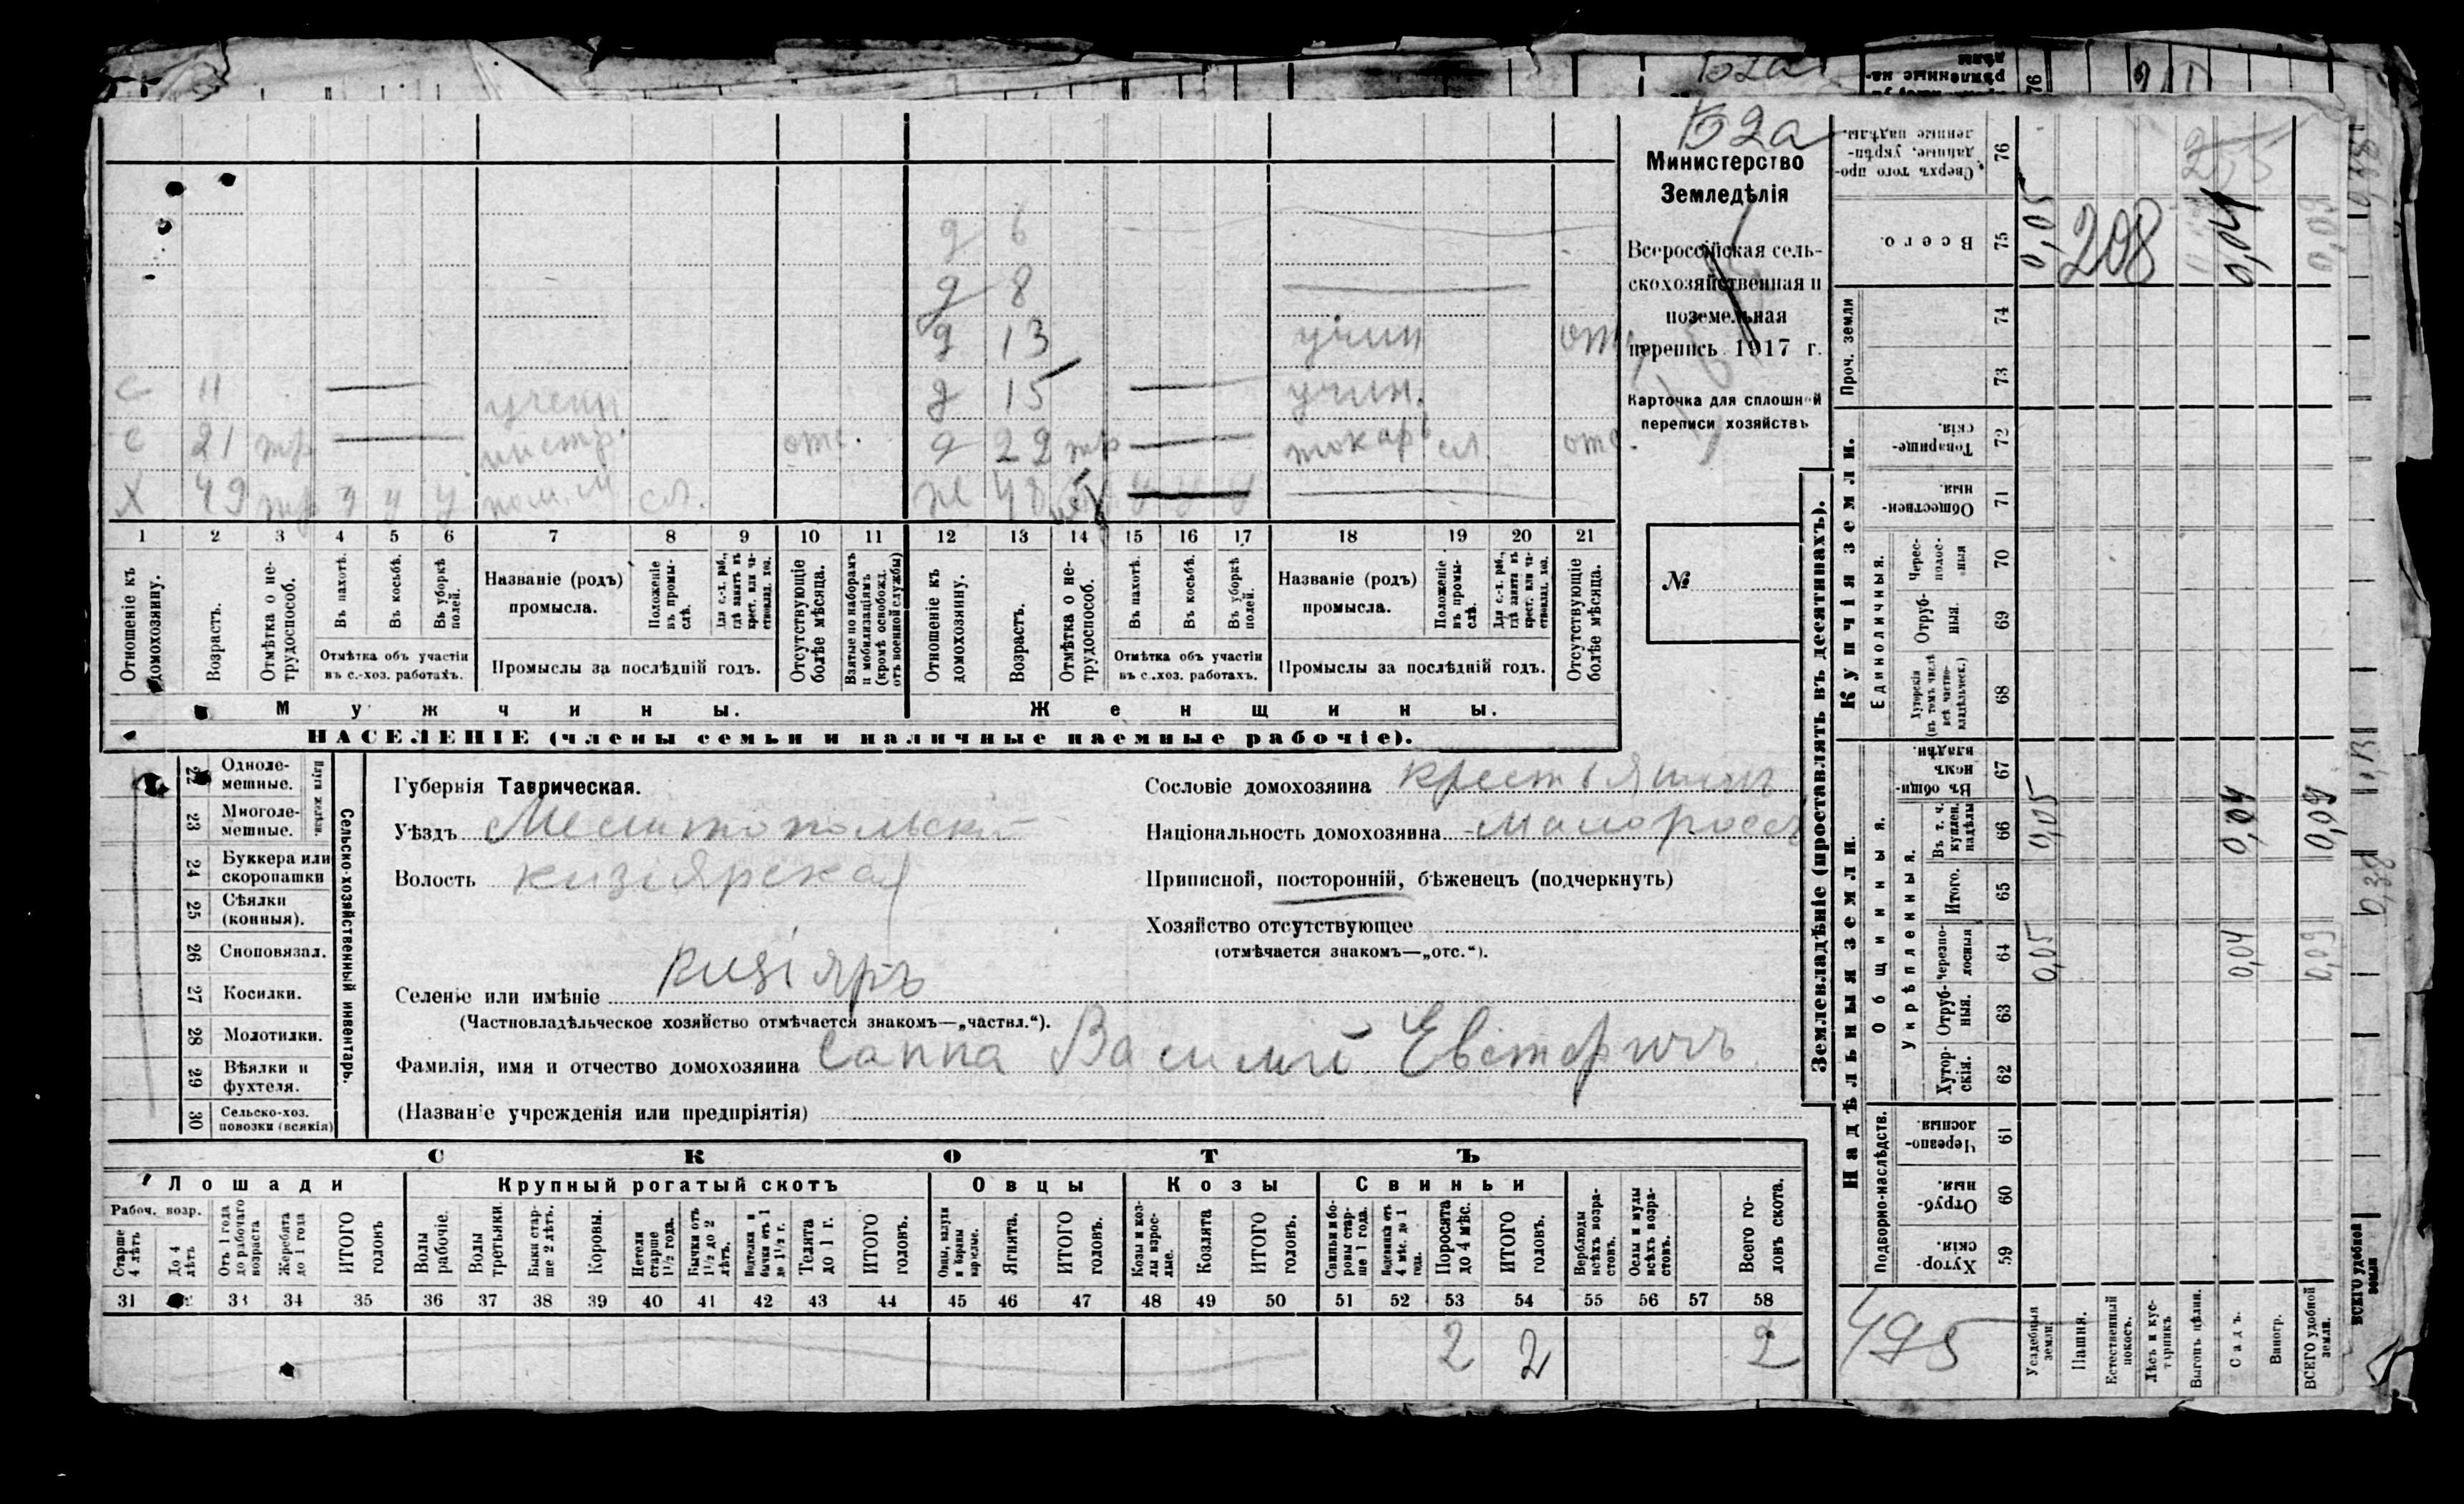 Б2а
52а
Министерство
Земледѣлія
Всероссійская сель-
скохозяйственная и
поземельная
перепись 1917 г.
Карточка для сплошной
переписи хозяйствъ
№
д 6
д 8
д 13 учин отс
с 11 — учени д 15 — учин.
с 21 тр — отс. д 22 тр — токар сл. отс.
Х 49 тр у у у пом. сл. ж 48 у у у
1 2 3 4 5 6 7 8 9 10 11 12 13 14 15 16 17 18 19 20 21
Отношеніе къ домохозяину.
Возрастъ.
Отмѣтка о не-трудоспособ.
Въ пахотѣ.
Въ косьбѣ.
Въ уборкѣ полей.
Отмѣтка объ участіи
въ с.-хоз. работахъ.
Названіе (родъ)
промысла.
Положеніе въ промы-слѣ.
Для с.-х. раб., гдѣ занятъ въ крест. или ча-стновлад. хоз.
Промыслы за послѣдній годъ.
Отсутствующіе болѣе мѣсяца.
Взятые по наборамъ и мобилизаціямъ (кромѣ освобожд. отъ военной службы)
Отношеніе къ домохозяину.
Возрастъ.
Отмѣтка о не-трудоспособ.
Въ пахотѣ.
Въ косьбѣ.
Въ уборкѣ полей.
Отмѣтка объ участіи
въ с.хоз. работахъ.
Названіе (родъ)
промысла.
Положеніе въ промы-слѣ.
Для с.-х. раб., гдѣ занята въ крест. или ча-стновлад. хоз.
Промыслы за послѣдній годъ.
Отсутствующіе болѣе мѣсяца.
Мужчины. Женщины.
НАСЕЛЕНІЕ (члены семьи и наличные наемные рабочіе).
22 Одноле-мешные.
23 Многоле-мешные.
Плуги желѣзн.
24 Буккера или скоропашки
25 Сѣялки (конныя).
26 Сноповязал.
27 Косилки.
28 Молотилки.
29 Вѣялки и фухтеля.
30 Сельско-хоз. повозки (всякія)
Сельско-хозяйственный инвентарь.
Губернія Таврическая.
Уѣздъ Мелитопольскій
Волость Кизіярская
Селеніе или имѣніе Кизіяръ
(Частновладѣльческое хозяйство отмѣчается знакомъ—„частвл.“).
Фамилія, имя и отчество домохозяина Саппа Василій
(Названіе учрежденія или предпріятія)
Сословіе домохозяина крестьянинъ
Національность домохозяина малоросс
Приписной, посторонній, бѣженецъ (подчеркнуть)
Хозяйство отсутствующее
(отмѣчается знакомъ—„отс.“).
СКОТЪ
Лошади Крупный рогатый скотъ Овцы Козы Свиньи
Рабоч. возр.
Старше 4 лѣтъ
До 4 лѣтъ
Отъ 1 года до рабочаго возраста
Жеребята до 1 года
ИТОГО головъ
Волы рабочіе.
Волы третьяки.
Быки стар-ше 2 лѣтъ.
Коровы.
Нетели старше 1½ года.
Бычки отъ 1½ до 2 лѣтъ.
Подтелки и бычки отъ 1 до 1½ г.
Телята до 1 г.
ИТОГО головъ.
Овцы, валухи и бараны взрослые.
Ягнята.
ИТОГО головъ.
Козы и коз-лы взрос-лые.
Козлята
ИТОГО головъ.
Свиньи и бо-ровы стар-ше 1 года.
Подсвинки отъ 4 мѣс. до 1 года.
Поросята до 4 мѣс.
ИТОГО головъ.
Верблюды всѣхъ возра-стовъ.
Ослы и мулы всѣхъ возра-стовъ.
Всего го-ловъ скота.
31 33 34 35 36 37 38 39 40 41 42 43 44 45 46 47 48 49 50 51 52 53 54 55 56 57 58
2 2 2
Землевладѣніе (проставлять въ десятинахъ).
Надѣльныя земли. Купчія земли. Проч. земли
Подворно-наслѣдств. Общинныя. Единоличныя.
Укрѣпленныя.
Хутор-скія. 59
Отруб-ныя. 60
Черезпо-лосныя 61
Хутор-скія. 62
Отруб-ныя. 63
Черезпо-лосныя 64
Итого. 65
Въ т. ч. куплен. надѣлы 66
Въ общин-номъ владѣн. 67
Хуторскія (въ томъ числѣ всѣ частно-владѣльческ.) 68
Отруб-ныя. 69
Черес-полос-ныя 70
Обществен-ныя. 71
Товарище-скія. 72
73
74
Всего. 75
Сверхъ того про-данные, укрѣп-ленные надѣлы. 76
Усадебная земля. 0,05 0,05 0,05
Пашня. 208
Естественный покосъ.
Лѣсъ и кус-тарникъ
Выгонъ цѣлин.
Садъ. 0,04 0,04 0,04
Виногр.
ВСЕГО удобной земли. 0,09 0,09 0,09
ВСЕГО удобной земли
0,38
495